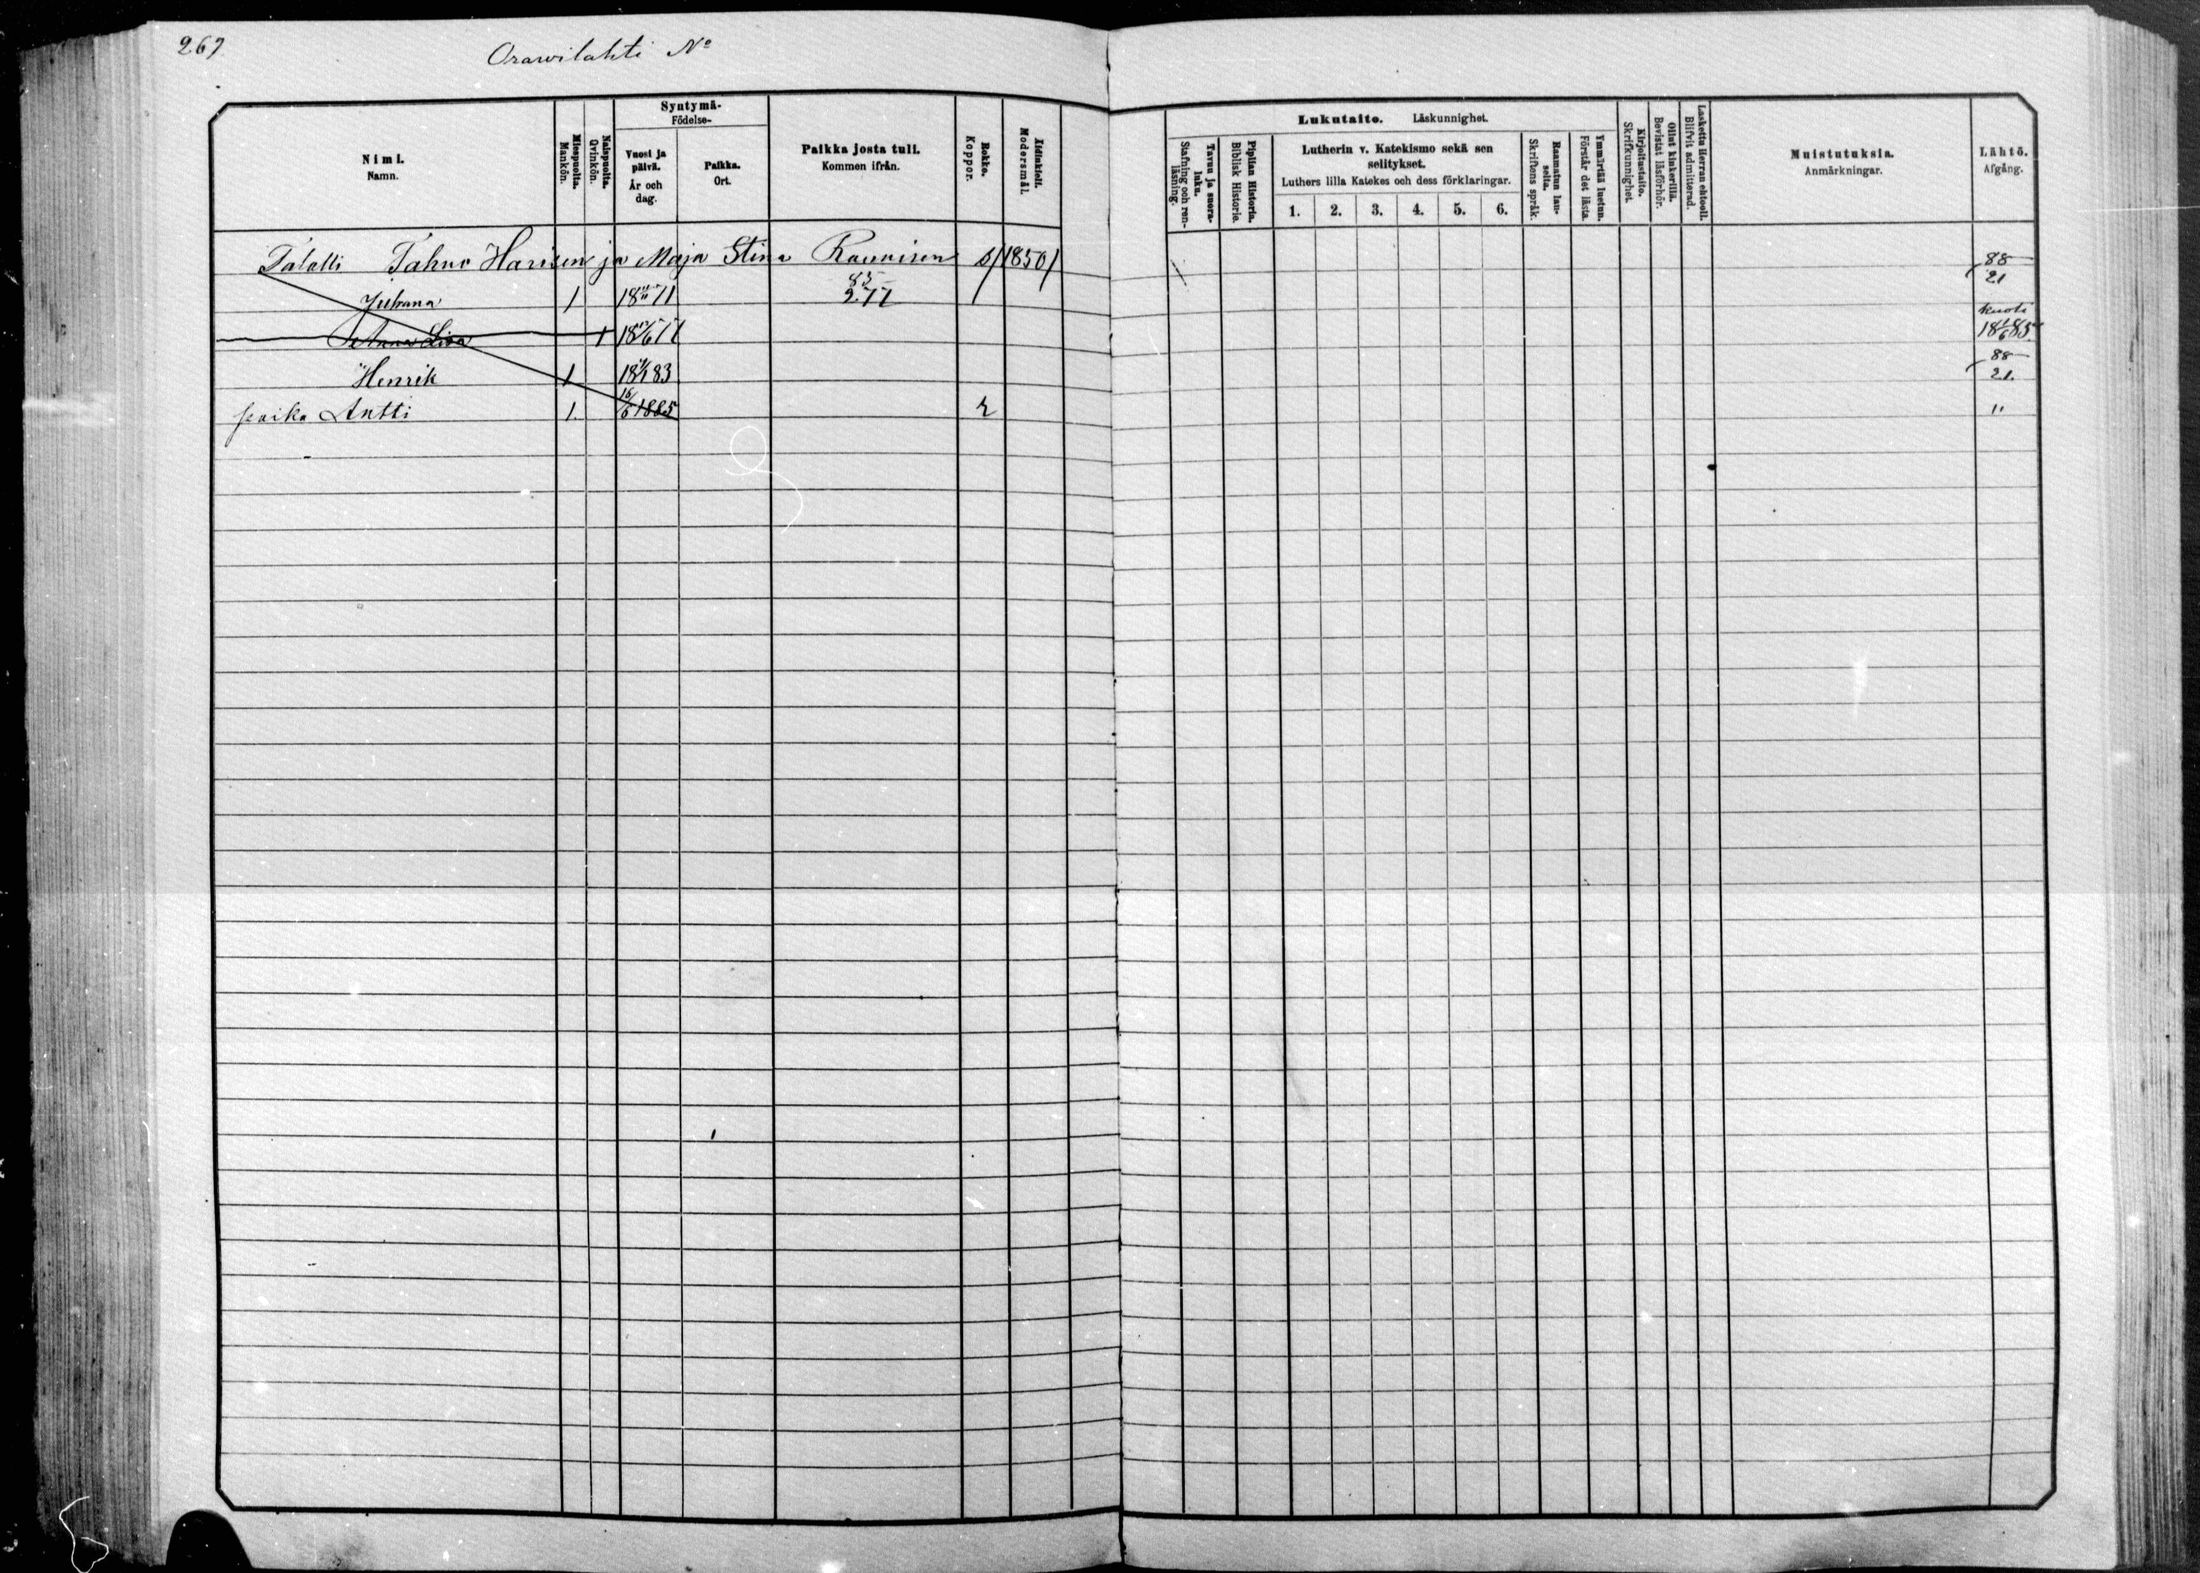 267
Orawilahti No
Syntymä-
Födelse-
Nimi.
Namn.
Miespuolia.
Mankön.
Naispuolia.
Qvinkön.
Vuosi ja päivä.
År och dag.
Paikka.
Ort.
Paikka josta tuli.
Kommen ifrån.
Rokko.
Koppor.
Äidinkieli.
Modersmål.
Lukutaito. Läskunnighet.
Tavuu ja suora-luku.
Stafning och ren-läsning.
Piplian Historia.
Biblisk Historie.
Lutherin v. Katekismo sekä sen
selitykset.
Luthers lilla Katekes och dess förklaringar.
1. 2. 3. 4. 5. 6.
Raamatun lau-seita.
Skriftens språk.
Ymmärtää luetun.
Förstår det lästa.
Kirjoitustaito.
Skrifkunnighet.
Ollut kinkerillä.
Bevistat läsförhör.
Laskettu Herran ehtooll.
Blifvit admitterad.
Muistutuksia.
Anmärkningar.
Lähtö.
Afgång.
Tahvo ja Maja Stina 1850 88
21
Juhana 1 18 71 77
Anna Liisa 1 18 77 kuoli
18 85
Henrik 1 18 83 88
21.
poika Antti 1. 16/6 1885 r "